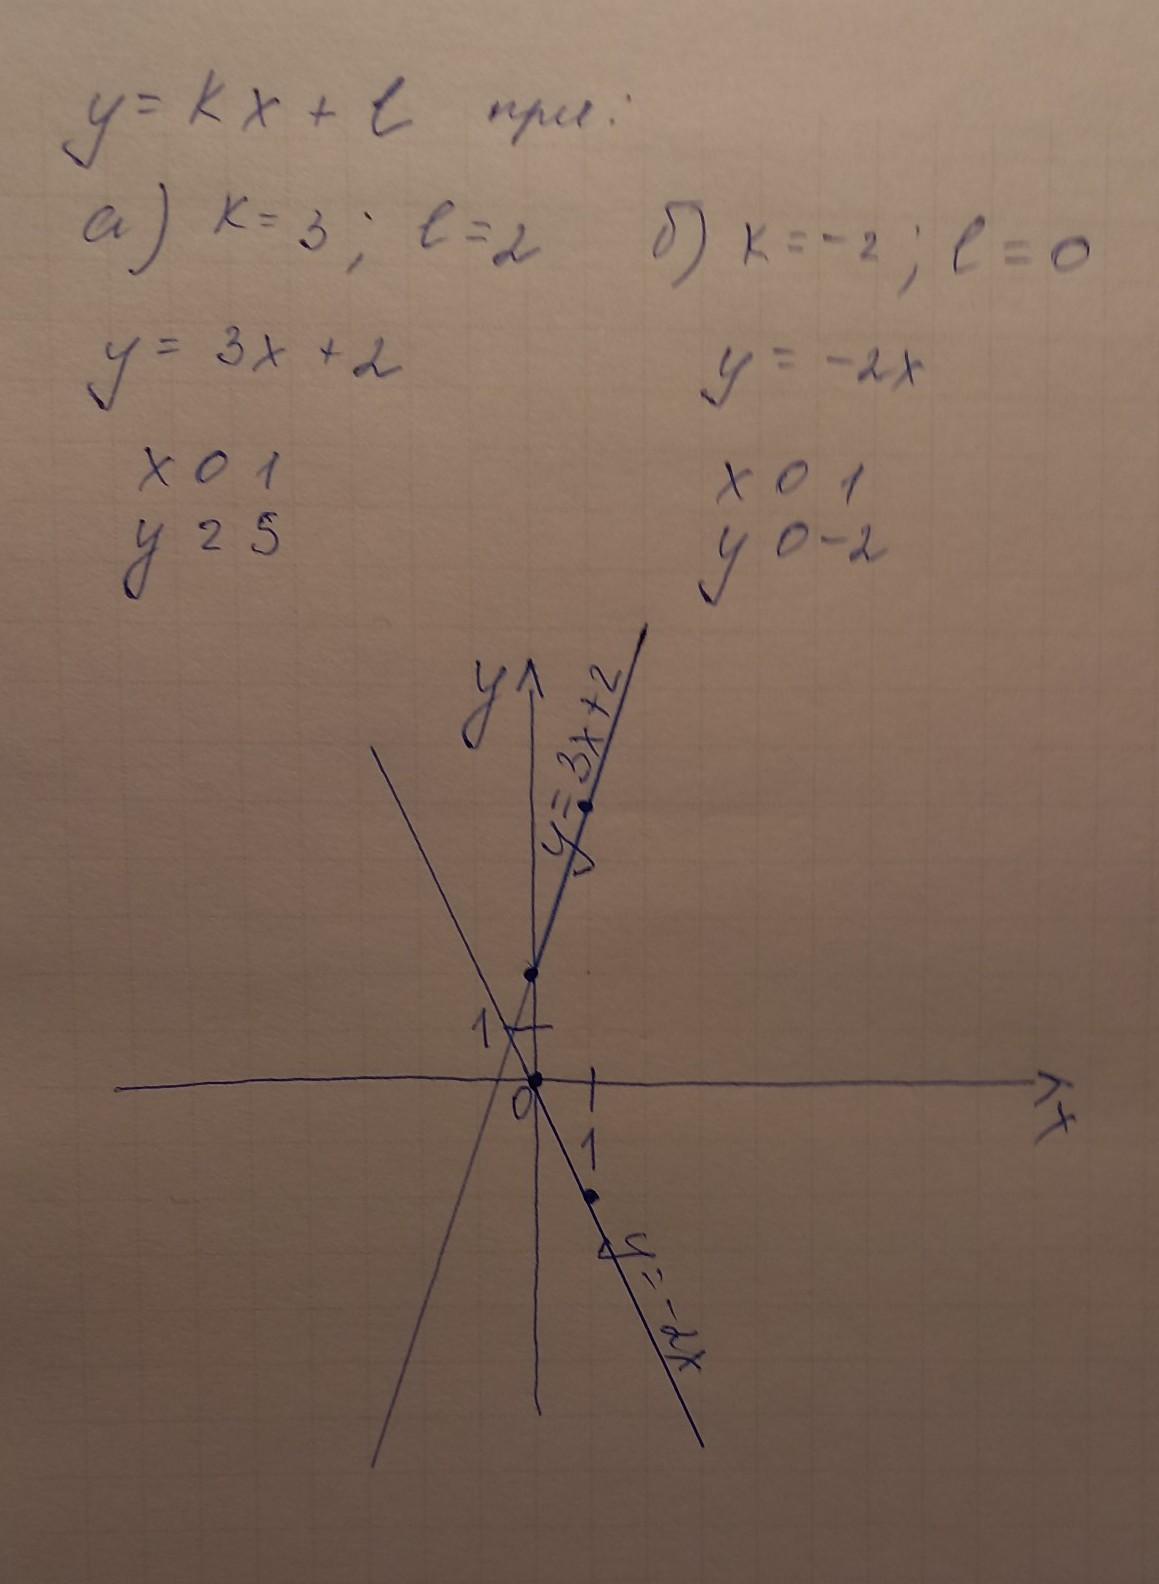 y = kx + l при:
а) k = 3; l = 2 б) k = -2; l = 0
y = 3x + 2 y = -2x
x 0 1 x 0 1
y 2 5 y 0 -2
y
y = 3x + 2
1
0
x
1
y = -2x